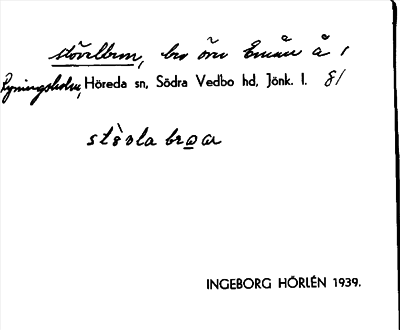 stövelbron, bro över Emån å i
Ryningsholm, Höreda sn, Södra Vedbo hd, Jönk. l. 81
INGEBORG HÖRLÉN 1939.